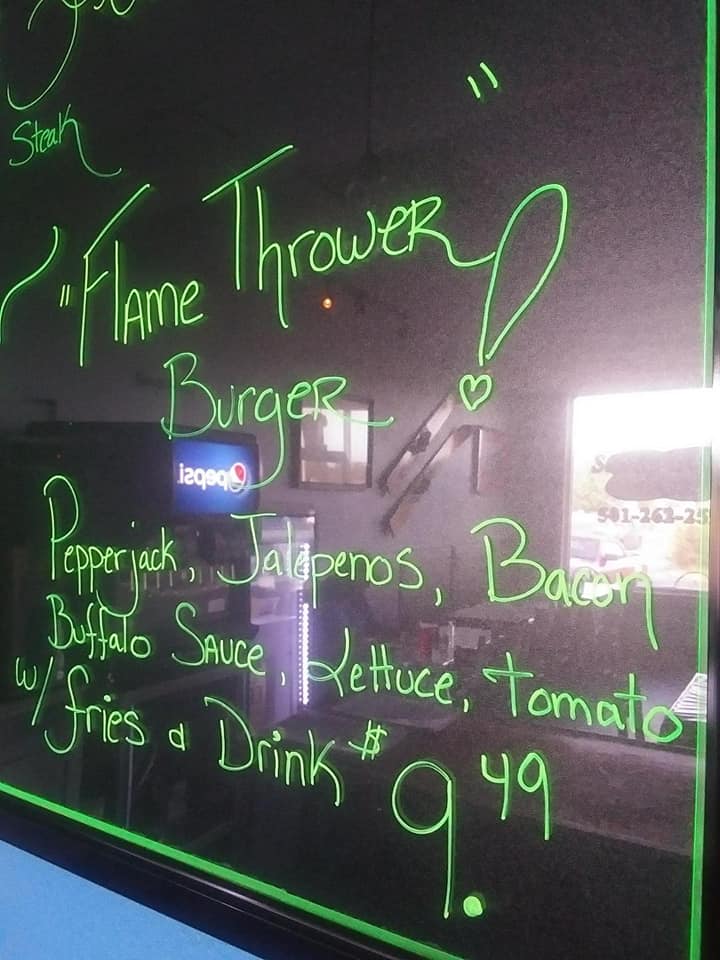 Steak
"Flame Thrower!"
Burger
pepsi
Pepperjack, Jalepenos, Bacon
Buffalo Sauce, Lettuce, Tomato
w/ fries & Drink $9.49